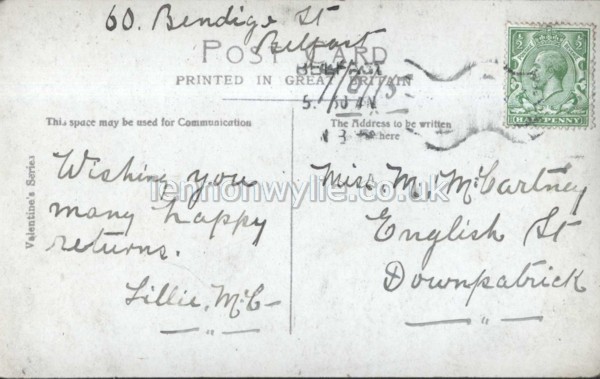 60. Bendigo St
Belfast
POST CARD
PRINTED IN GREAT BRITAIN
BELFAST
HALFPENNY
This space may be used for Communication
The Address to be written
here
Valentine's Series
Wishing you
many happy
returns.
Lillie, McC—
Miss. M, McCartney
English St
Downpatrick
lennonwylie.co.uk